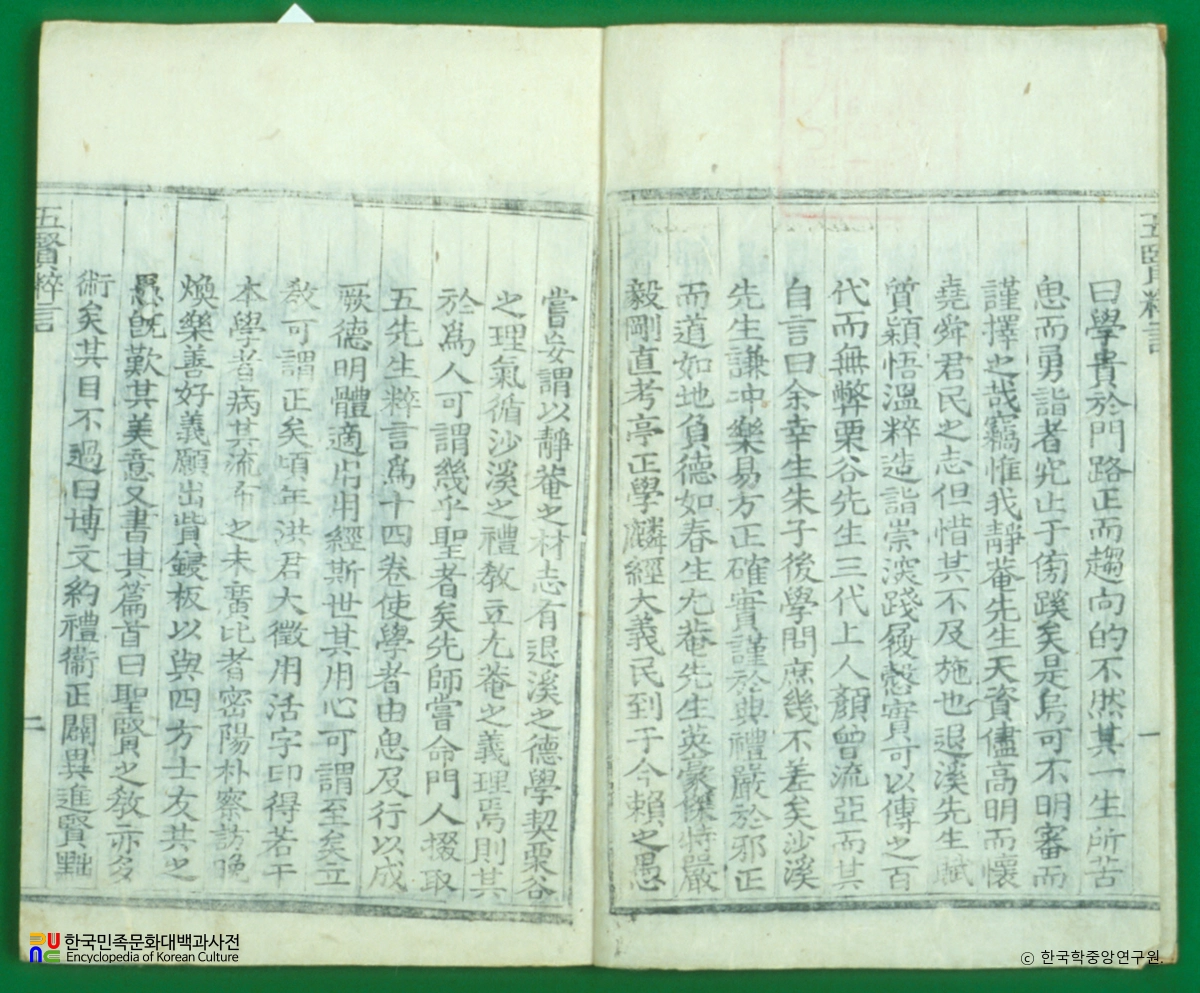 五賢粹言
曰學貴於門路正而趨向的不然其一生所苦
思而勇詣者究止于傍蹊矣是烏可不明審而
謹擇之哉竊惟我靜菴先生天資儘高明而懷
堯舜君民之志但惜其不及施也退溪先生賦
質穎悟溫粹造詣崇深踐履慤實可以傳之百
代而無弊栗谷先生三代上人顏曾流亞而其
自言曰余幸生朱子後學問庶幾不差矣沙溪
先生謙冲樂易方正確實謹於典禮嚴於邪正
而道如地負德如春生尤菴先生英豪傑特嚴
毅剛直考亭正學麟經大義民到于今賴之愚
一
嘗妄謂以靜菴之材志有退溪之德學契栗谷
之理氣循沙溪之禮敎立尤菴之義理焉則其
於爲人可謂幾乎聖者矣先師嘗命門人掇取
五先生粹言爲十四卷使學者由思及行以成
厥德明體適用用經斯世其用心可謂至矣立
敎可謂正矣頃年洪君大徵用活字印得若干
本學者病其流布之未廣比者密陽朴察訪晚
煥樂善好義願出貲鋟板以與四方士友共之
愚旣歎其美意又書其篇首曰聖賢之敎亦多
術矣其目不過曰博文約禮衞正闢異進賢黜
五賢粹言
二
한국민족문화대백과사전
Encyclopedia of Korean Culture
ⓒ 한국학중앙연구원